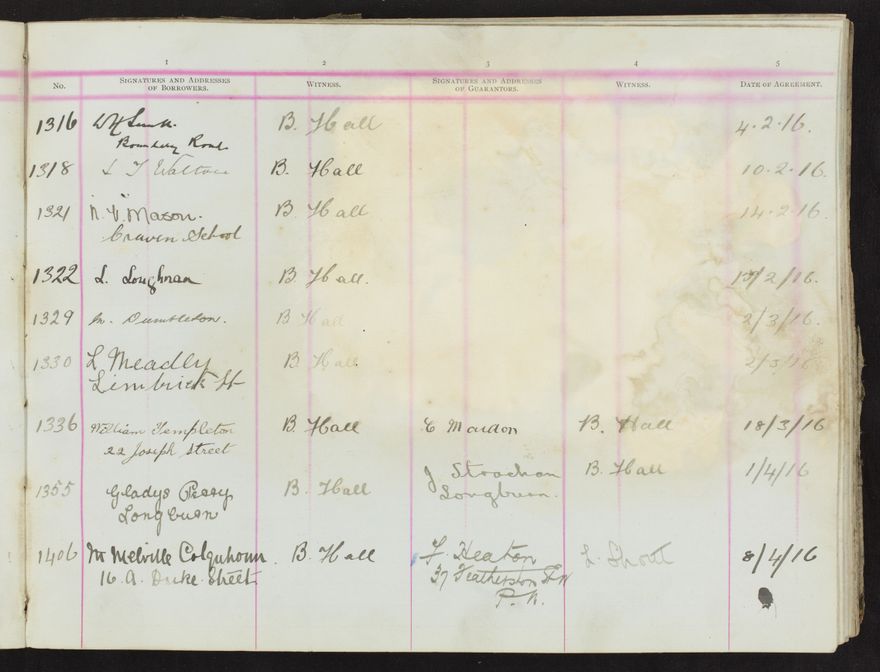 1 2 3 4 5
No. SIGNATURES AND ADDRESSES OF BORROWERS. WITNESS. SIGNATURES AND ADDRESSES OF GUARANTORS. WITNESS. DATE OF AGREEMENT.
1316 B. Hall 4.2.16.
Boundary Road
1318 B. Hall 10.2.16.
1321 Mason. B. Hall 14.2.16.
Craven School
1322 L. Loughnan B. Hall. 17/2/16.
1329 M. Dumbleton. B Hall 2/3/16.
1330 L Meadly B Hall 2/3/16
Limbrick St
1336 William Templeton B. Hall C Mardon B. Hall 18/3/16
22 Joseph Street
1355 Gladys Perry B. Hall J Strachan B. Hall 1/4/16
Longburn Longburn.
1406 M Melville Colquhoun. B. Hall F. Heaton L. Shout 8/4/16
16.A. Duke Street 37 Featherston St
P. N.